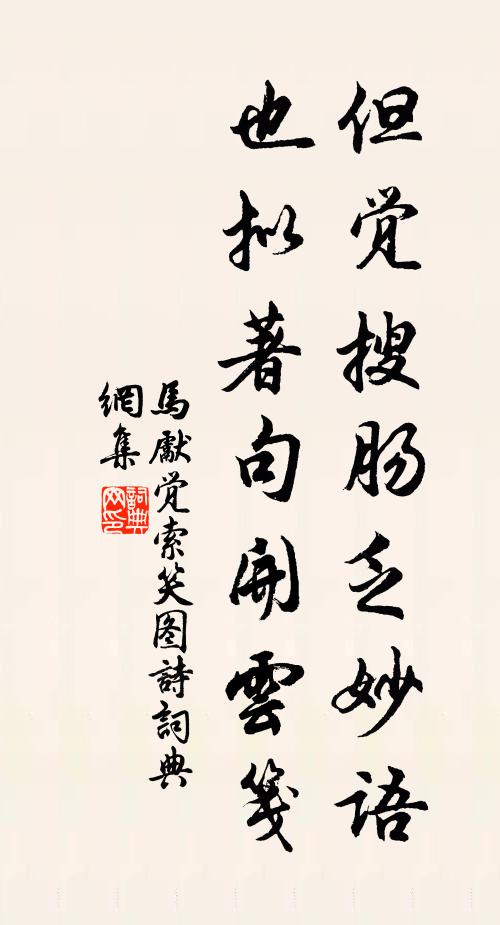 但觉搜肠乏妙语
也拟著句開雲箋
馬獻觉索笑图詩詞典
網集
詞典网印